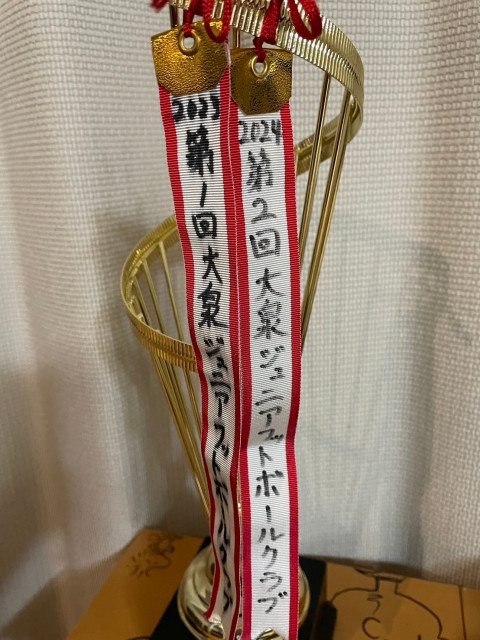 2023 第1回大泉ジュニアフットボールクラブ
2024 第2回大泉ジュニアフットボールクラブ